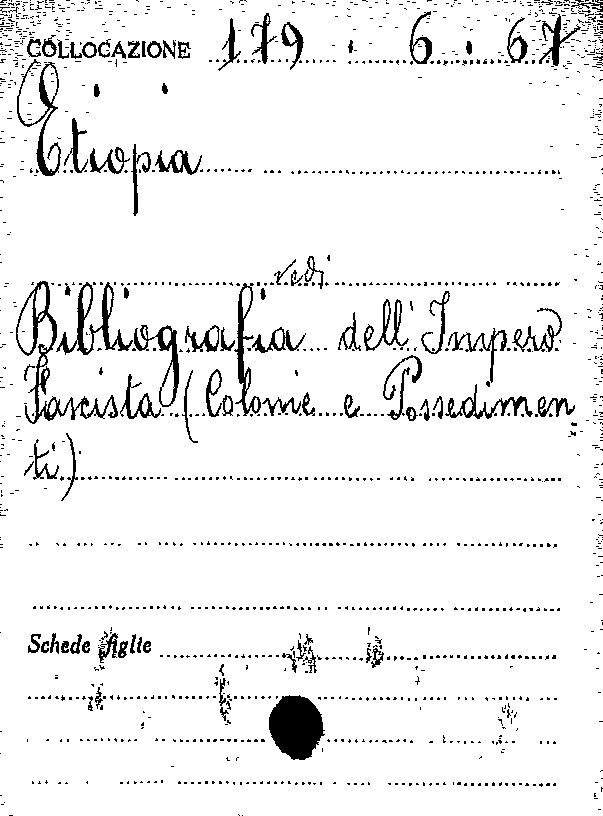 COLLOCAZIONE 179 . 6 . 67
Etiopia
vedi
Bibliografia dell'Impero
Fascista (Colonie e Possedimen
ti)
Schede figlie